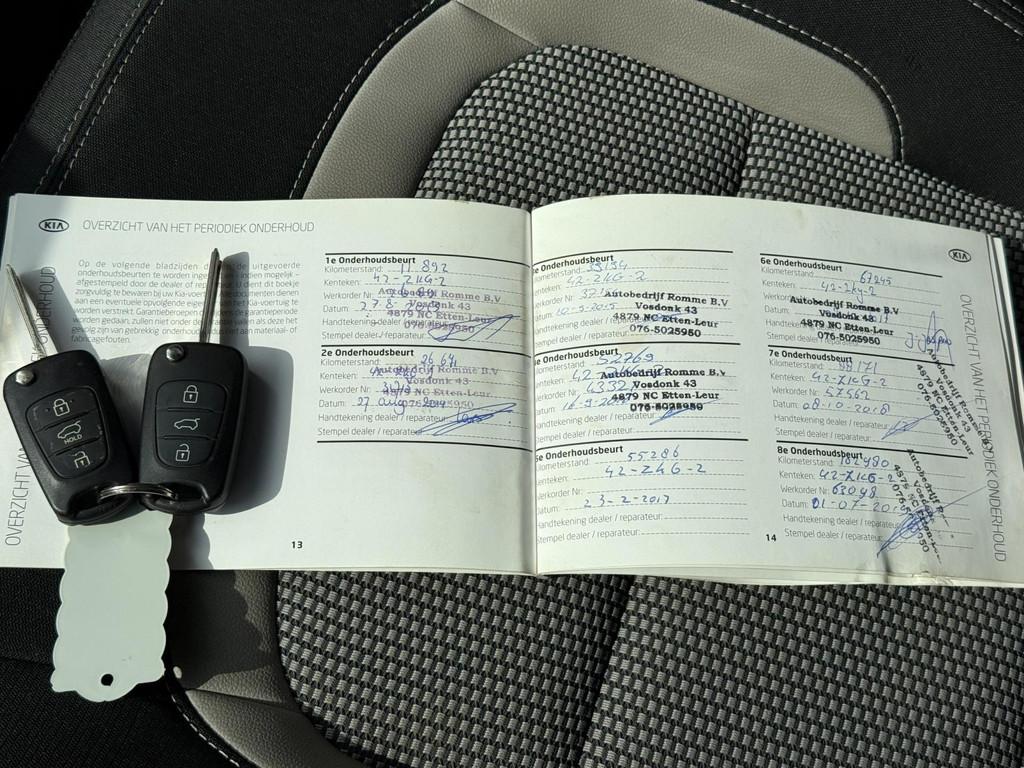 KIA OVERZICHT VAN HET PERIODIEK ONDERHOUD
Op de volgende bladzijden uitgevoerde
onderhoudsbeurten te worden indien mogelijk –
afgestempeld door de dealer of U dient dit boekje
zorgvuldig te bewaren bij uw Kia-voertuig dienen
aan een eventuele opvolgende Kia-voertuig te
worden verstrekt. Garantie garantieperiode
worden gedaan, zullen niet onder garantie vallen als deze het
gevolg zijn van gebrekkig materiaal- of
fabricagefouten.
OVERZICHT VAN
ONDERHOUD
HOLD
1e Onderhoudsbeurt
Kilometerstand: 11.892
Kenteken: 42-ZKG-2
Werkorder Nr:
Autobedrijf Romme B.V.
Datum:
Vosdonk 43
4879 NC Etten-Leur
Handtekening dealer
076-5025950
Stempel dealer / reparateur:
2e Onderhoudsbeurt
Kilometerstand:
Kenteken:
Autobedrijf Romme B.V.
Vosdonk 43
Werkorder Nr:
4879 NC Etten-Leur
Datum: 27 aug
Handtekening dealer / reparateur:
Stempel dealer / reparateur:
13
Onderhoudsbeurt
Kilometerstand:
Kenteken: 42-ZKG-2
Werkorder Nr:
Autobedrijf Romme B.V.
Vosdonk 43
Datum:
4879 NC Etten-Leur
Handtekening dealer
076-5025950
Stempel dealer / reparateur:
Onderhoudsbeurt
Kilometerstand: 52769
Kenteken: 42
Autobedrijf Romme B.V.
Werkorder Nr: 4332
Vosdonk 43
4879 NC Etten-Leur
Datum:
076-5025950
Handtekening dealer / reparateur:
Stempel dealer / reparateur:
5e Onderhoudsbeurt
Kilometerstand: 55286
Kenteken: 42-ZKG-2
Werkorder Nr:
Datum: 23-2-2017
Handtekening dealer / reparateur:
Stempel dealer / reparateur:
KIA
6e Onderhoudsbeurt
Kilometerstand: 67245
Kenteken: 42-ZKG-2
Werkorder
Autobedrijf Romme B.V.
Datum:
Vosdonk 43
4879 NC Etten-Leur
Handtekening
076-5025950
Stempel dealer / reparateur
7e Onderhoudsbeurt
Kilometerstand: 88171
Kenteken: 42-ZKG-2
Werkorder Nr: 57562
Datum: 08-10-2018
Handtekening dealer / reparateur:
Stempel dealer / reparateur:
Autobedrijf Romme B
Vosdonk 43
4879 NC Etten-Leur
076-5025950
8e Onderhoudsbeurt
Kilometerstand: 102980
Kenteken: 42-ZKG-2
Werkorder Nr: 63048
Datum: 01-07-20
Handtekening dealer / reparateur:
Stempel dealer / reparateur:
Autobedrijf
Vosdonk
4879 NC Etten-L
14
OVERZICHT VAN HET PERIODIEK ONDERHOUD